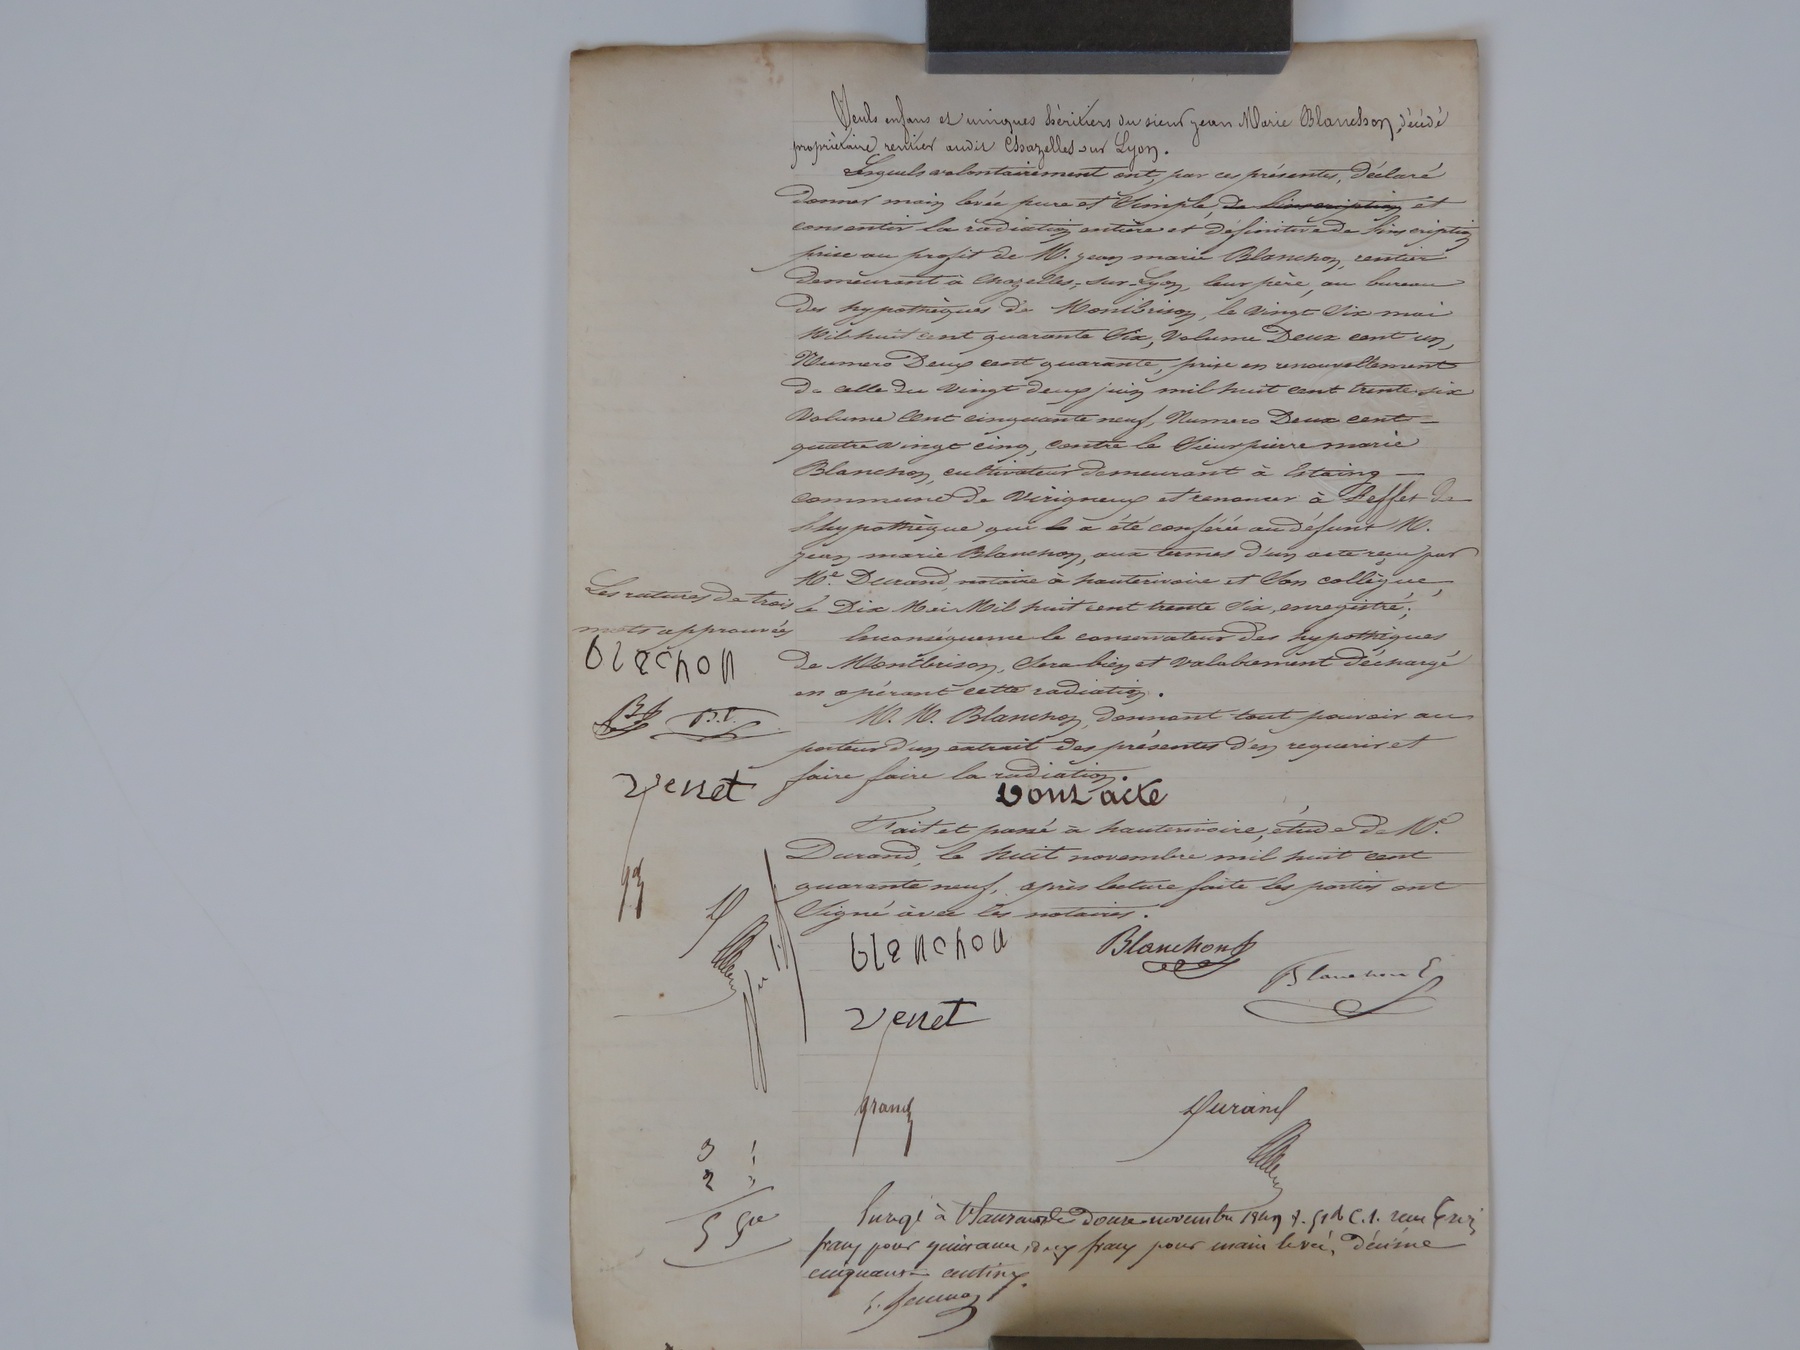 Seuls enfans et uniques héritiers du sieur jean Marie Blanchon, décédé
propriétaire rentier audit Chazelles sur Lyon.
Lesquels volontairement ont, par ces présentes, déclaré
donner main levée pure et simple, de l'inscription et
consentir la radiation entière et définitive de l'inscription
prise au profit de M. jean marie Blanchon, rentier
demeurant à Chazelles-sur-Lyon, leur père, au bureau
des hypothèques de Montbrison, le vingt six mai
Mil huit cent quarante six, Volume Deux cent un,
Numero Deux cent quarante, prise en renouvellement
de celle du vingt deux juin mil huit cent trente six
volume Cent cinquante neuf, Numero Deux cent
quatre vingt cinq, contre le Sieur pierre marie
Blanchon, cultivateur demeurant à Estaing
commune de Virigneux et renoncer à l'effet de
l'hypothèque qui a été conférée au défunt M.
jean marie Blanchon, aux termes d'un acte reçu par
Me. Durand, notaire à hauterivoire et Son collègue,
le Dix Mai Mil huit cent trente Six, enregistré;
Les ratures de trois
mots approuvées
blachon
B.P.
venet
En conséquence le conservateur des hypothèques
de Montbrison, Sera bien et valablement déchargé
en opérant cette radiation.
M. M. Blanchon, donnent tout pouvoir au
porteur d'un extrait des présentes d'en requerir et
faire faire la radiation.
Dont acte
Fait et passé à hauterivoire, étude de Me.
Durand, le huit novembre mil huit cent
quarante neuf, après lecture faite les parties ont
Signé avec les notaires.
blanchon
Blanchon
Blanchon
venet
grand
Durand
3
2
5
novembre
francs pour quittance, deux francs pour main levée, décime
cinquante centimes.